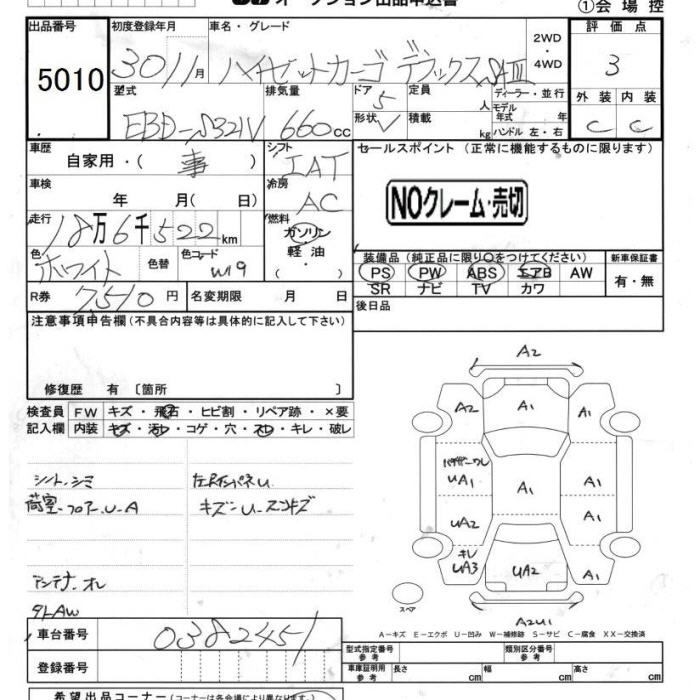 オークション出品申込書
①会場控
出品番号 初度登録年月 車名・グレード 2WD・4WD 評価点
5010 30 11月 ハイゼットカーゴ デラックスSAⅢ 3
型式 排気量 ドア 5 定員 人 ディーラー・並行 外装 内装
モデル年式 年
EBD-S321V 660cc 形状 積載 kg ハンドル 左・右 C C
車歴 シフト セールスポイント (正常に機能するものに限ります)
自家用・( 事 ) IAT
車検 冷房
年 月( 日) AC NOクレーム・売切
走行 燃料
18万6千522km ガソリン
色 色替 色コード 軽油・ 装備品 (純正品に限り○をつけてください) 新車保証書
ホワイト W19 ( ) PS PW ABS エアB AW 有・無
SR ナビ TV カワ
R券 7,510円 名変期限 月 日 後日品
注意事項申告欄 (不具合内容等は具体的に記入して下さい)
修復歴 有 〔箇所 〕
検査員 FW キズ・飛石・ヒビ割・リペア跡・×要
記入欄 内装 キズ・汚レ・コゲ・穴・スレ・キレ・破レ
シート、シミ
荷室フロアーU-A
アンテナ、オレ
左Rインパネu
キズーU-スンキズ
A2
A2 A1
UA1 A1 A1
UA2 A1
キレ
UA3 UA2 A1
スペア A2U1
A-キズ E-エクボ U-凹み W-補修跡 S-サビ C-腐食 XX-交換済
車台番号 0382451
型式指定番号 参考 類別区分番号 参考
登録番号 車庫証明用 参考 長さ cm 幅 cm 高さ cm
希望出品コーナー (コーナーは各会場により異なります)